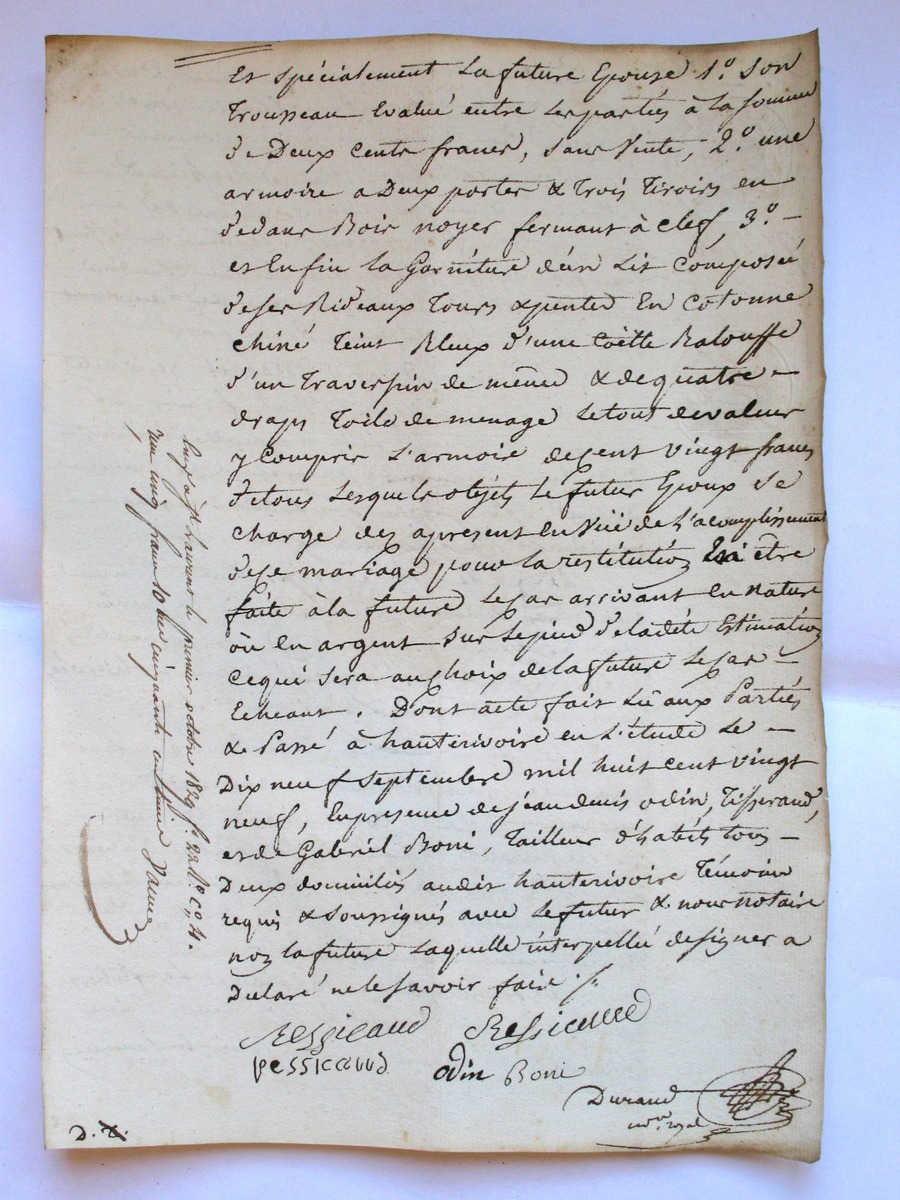 Et spécialement La future Epouse 1.° Son
Trousseau Evalué entre Les parties à La somme
de Deux Cents francs, sans Vente, 2.° une
armoire a Deux portes & Trois Tiroirs en
dedans Bois noyer fermant à Clef, 3.° –
et Enfin la Garniture d'un Lit Composé
de ses Rideaux Tours & pentes En Cotonne
chiné Teint Bleux d'une Coëtte Balouffe
d'un Traversin de même & de quatre –
draps Toile de menage Le tout de valeur
y Compris L'armoire de Cent vingt francs
de tous Lesquels objets Le futur Epoux se
charge dez apresent En Vüe de L'acomplissement
de ce mariage pour la restitution En être
faite à la future Le cas arrivant En nature
ou en argent sur Le pied de la dite Estimation
Ce qui sera au Choix de la future Le cas –
Echeant. Dont acte fait Lû aux Parties
& Passé à hauterivoire en L'étude Le –
Dix neuf septembre mil huit cent vingt
neuf, En presence de jean denis odin, Tisserand,
et de Gabriel Boni, Tailleur d'habits tous –
Deux domiciliés audit hauterivoire Témoins
requis & soussignés avec Le futur & nous notaire
non la future Laquelle interpellée de signer a
Declaré ne le savoir faire ./.
Ressicaud Ressicaud
pessicaud odin Boni
Durand
no.re royal
D. X.
Enreg. à St Laurent le premier octobre 1829 f.° 22 R.° C.es 4.
reçu cinq francs 10.es cinquante centimes